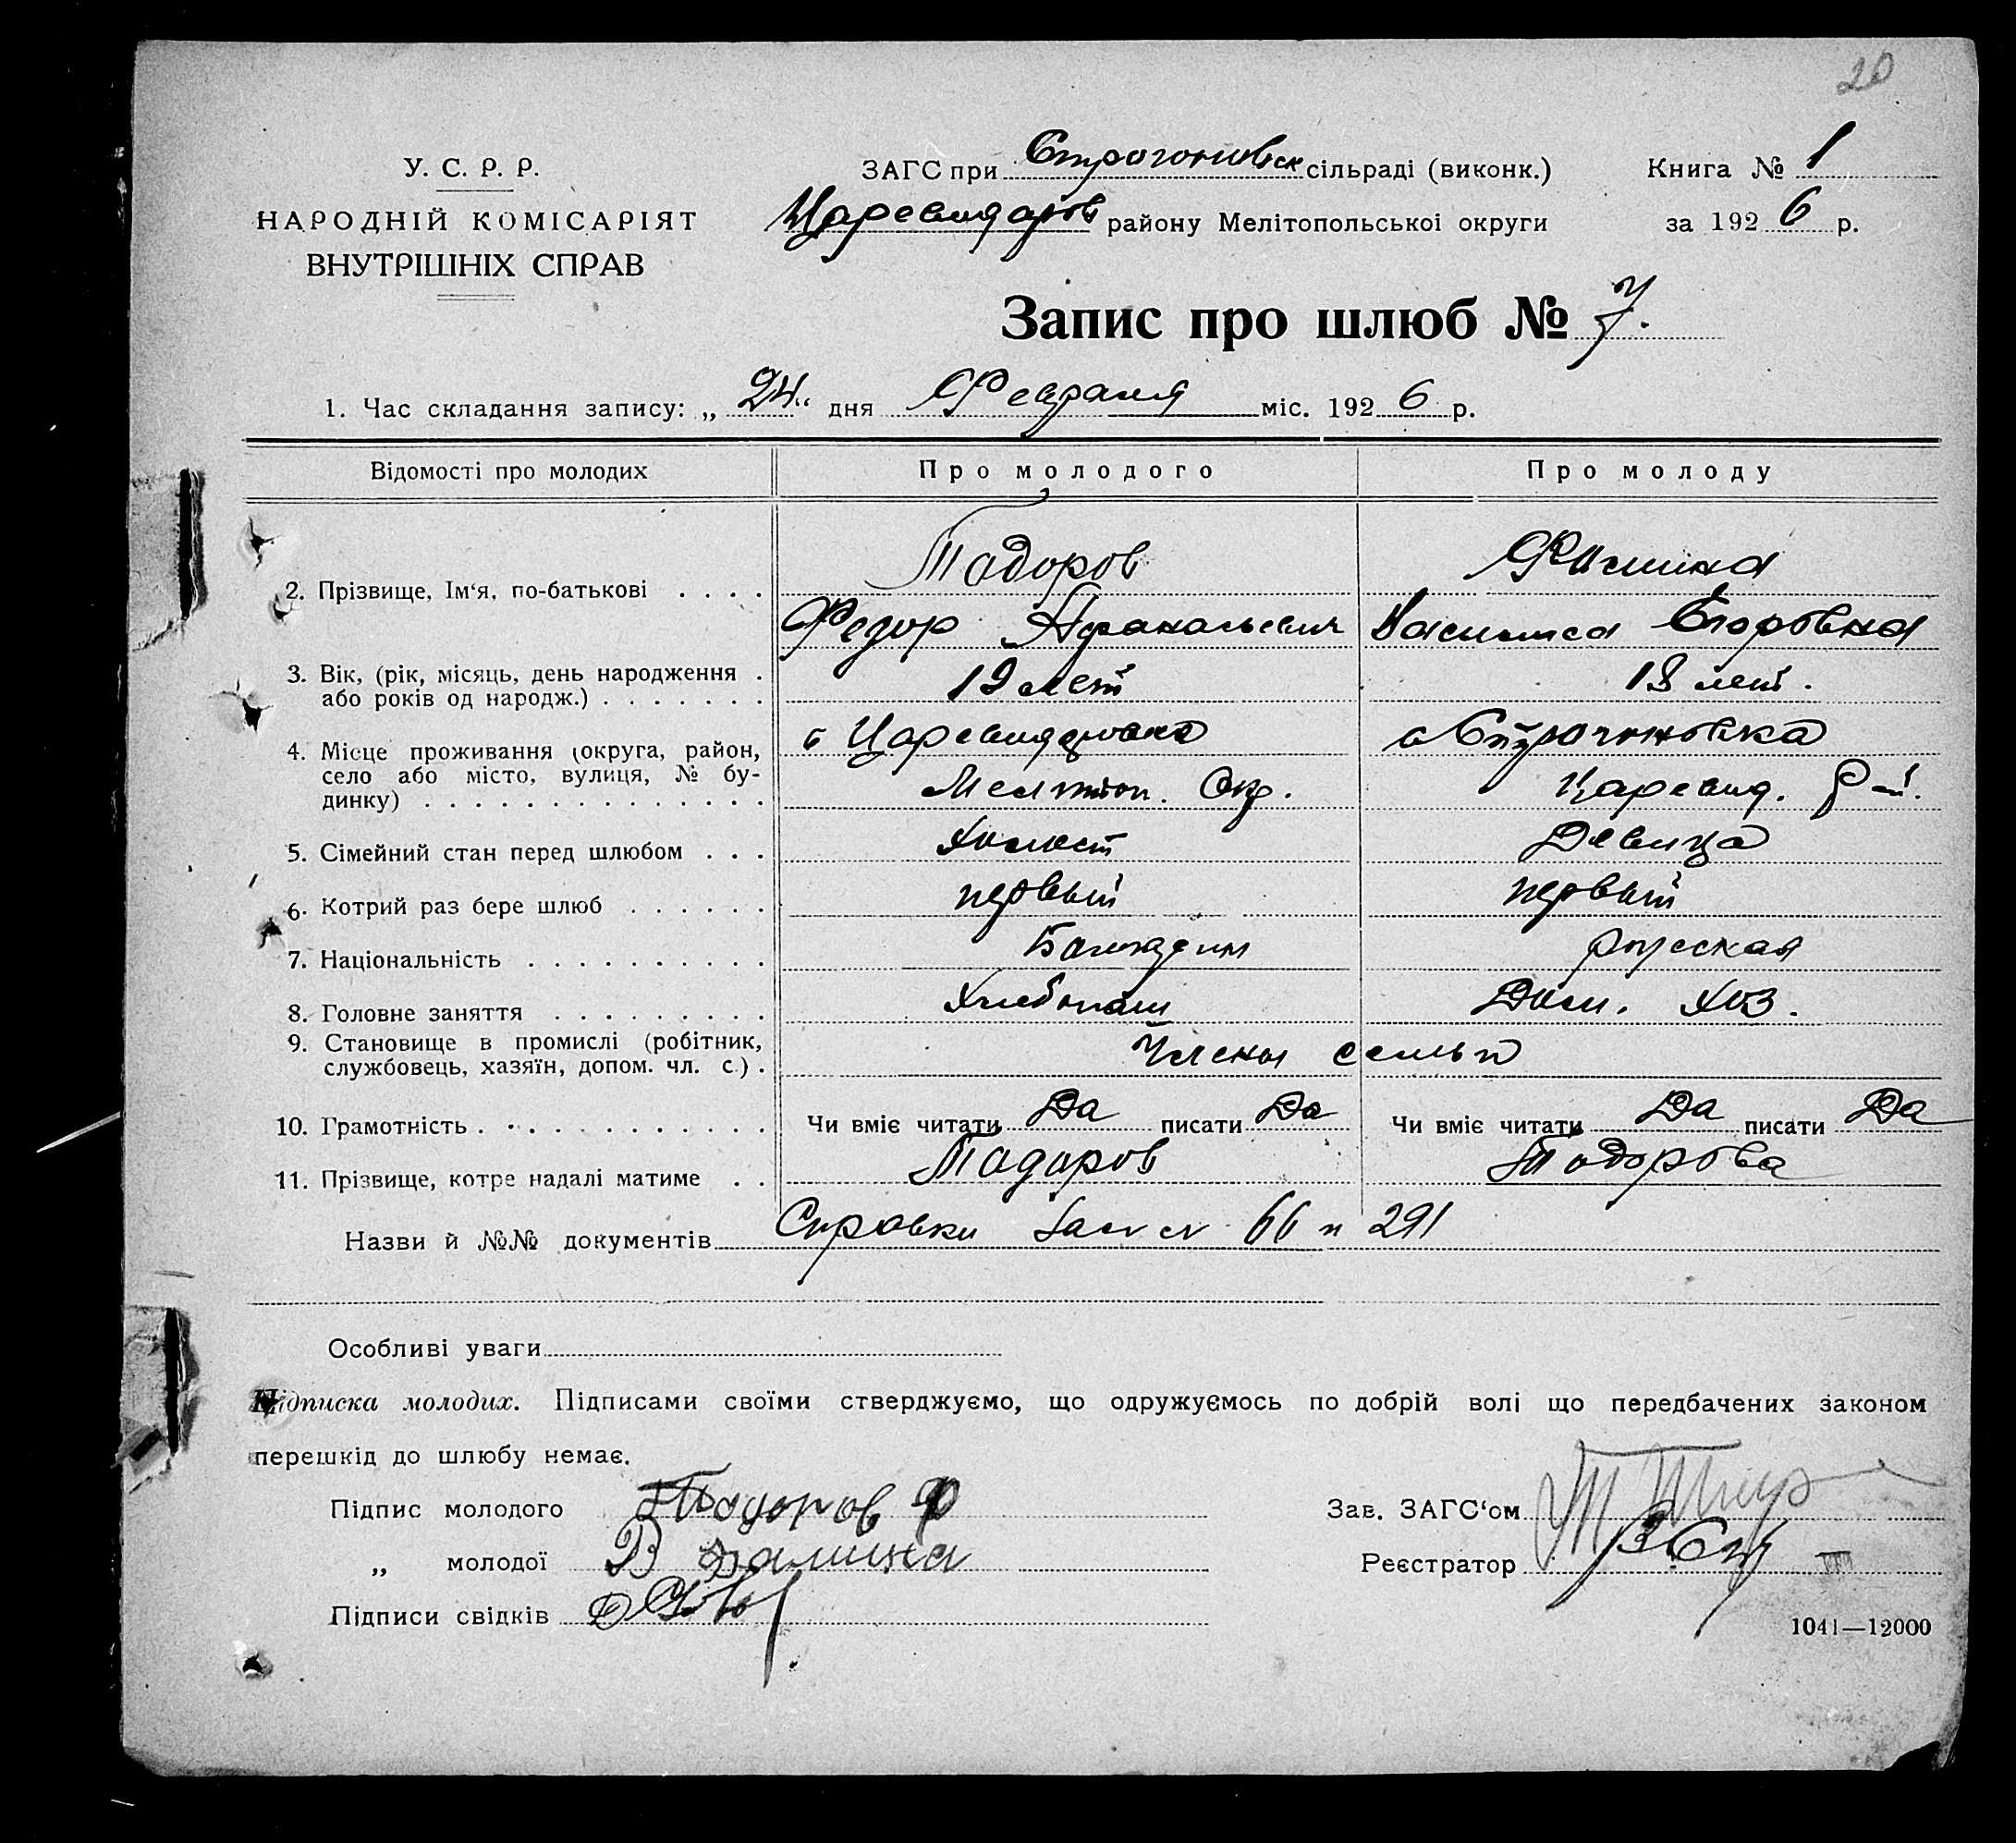 20
У. С. Р. Р.
НАРОДНІЙ КОМІСАРІЯТ
ВНУТРІШНІХ СПРАВ
ЗАГС при Строгоновск сільраді (виконк.)
Книга № 1
Царевидаров району Мелітопольської округи
за 1926 р.
Запис про шлюб № 7.
1. Час складання запису: „24“ дня Февраля міс. 1926 р.
Відомості про молодих
Про молодого
Про молоду
2. Прізвище, Ім'я, по-батькові . . . .
Тодоров
Федор Афанасьевич
Василиса Егоровна
3. Вік, (рік, місяць, день народження .
або років од народж.) . . . . . . .
19 лет
18 лет.
4. Місце проживання (округа, район,
село або місто, вулиця, № бу-
динку) . . . . . . . . . . . . . .
с Царевидаровка
Мелитоп. Окр.
с Строгоновка
Царевид. Р-н.
5. Сімейний стан перед шлюбом . . .
Холост
Девица
6. Котрий раз бере шлюб . . . . . .
первый
первый
7. Національність . . . . . . . . . .
Болгарин
русская
8. Головне заняття . . . . . . . . .
Хлебопаш
Дом. хоз.
9. Становище в промислі (робітник,
службовець, хазяїн, допом. чл. с.) .
Члены семьи
10. Грамотність . . . . . . . . . . . .
Чи вміє читати Да писати Да
Чи вміє читати Да писати Да
11. Прізвище, котре надалі матиме . .
Тодоров
Тодорова
Назви й №№ документів Справки 66 и 291
Особливі уваги
Підписка молодих. Підписами своїми стверджуємо, що одружуємось по добрій волі що передбачених законом
перешкід до шлюбу немає.
Підпис молодого Тодоров Ф
„ молодої В
Підписи свідків
Зав. ЗАГС'ом
Реєстратор
1041—12000